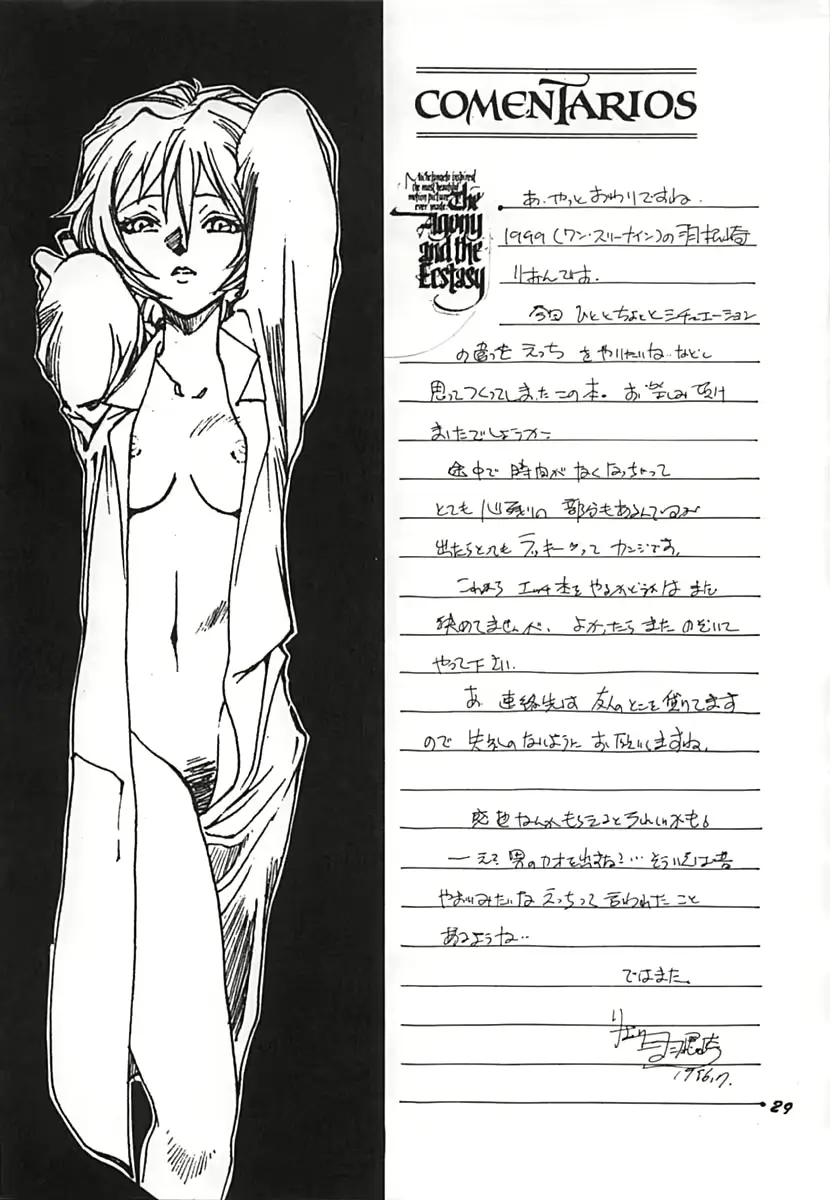 COMENTARIOS
the most beautiful
motion picture
ever made:
The
Agony
and the
Ecstasy
あ、やっとおわりですね。
1999(ワン・スリーナイン)の羽根崎
りおんです。
今回 ひととちょっとシチュエーション
の違った えっち をやりたいね…などと
思ってつくってしまったこの本。お楽しみ頂け
ましたでしょうか?
途中で 時間がなくなっちゃって
とても 心残りの 部分もあるんでいるが
出たらとってもラッキーってカンジです。
これから エッチ本をやるかどうかは また
決めてませんが、よかったら また のぞいて
やって下さい。
あ 連絡先は 友人のとこを借りてます
ので 失礼のないように お願いしますね。
感想なんかもらえるとうれしいかも。
一え? 男のカオを出すな?…そういえば昔
やおいみたいな えっちって 言われた こと
あるような…
ではまた。
29